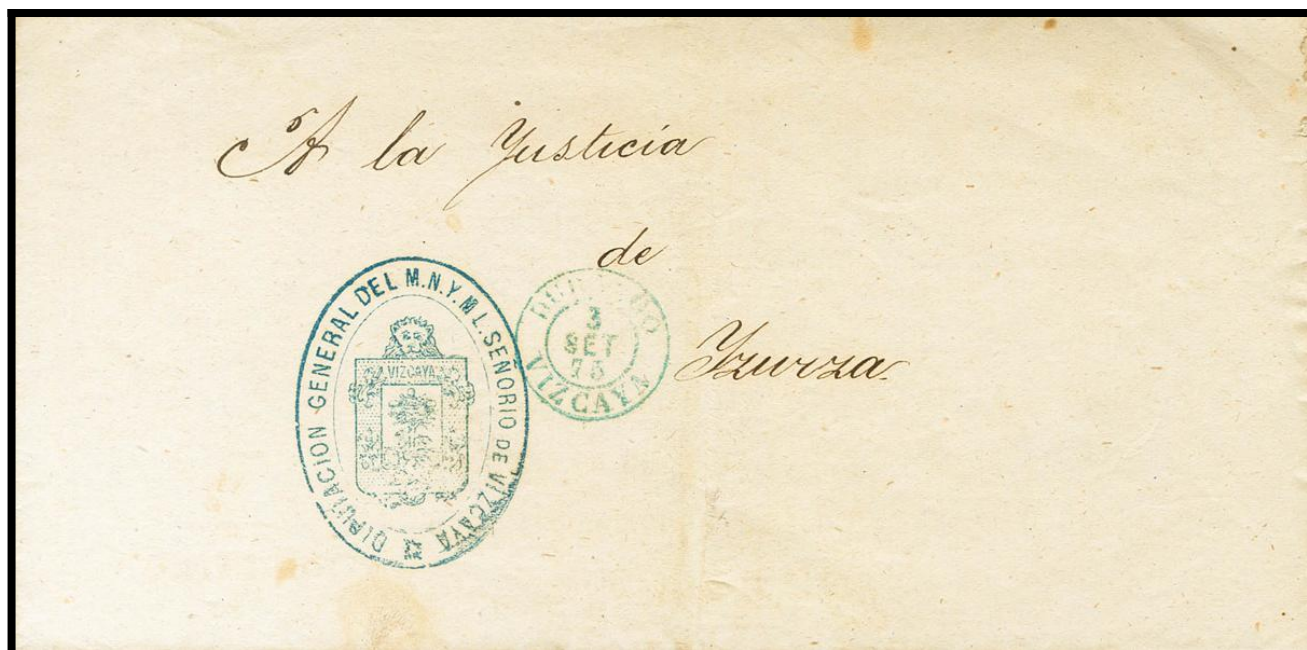 A la Justicia
de
Yzurza.
DIPUTACION GENERAL DEL M.N.Y.M.L. SEÑORIO DE VIZCAYA
VIZCAYA
DURANGO
3
SET
75
VIZCAYA